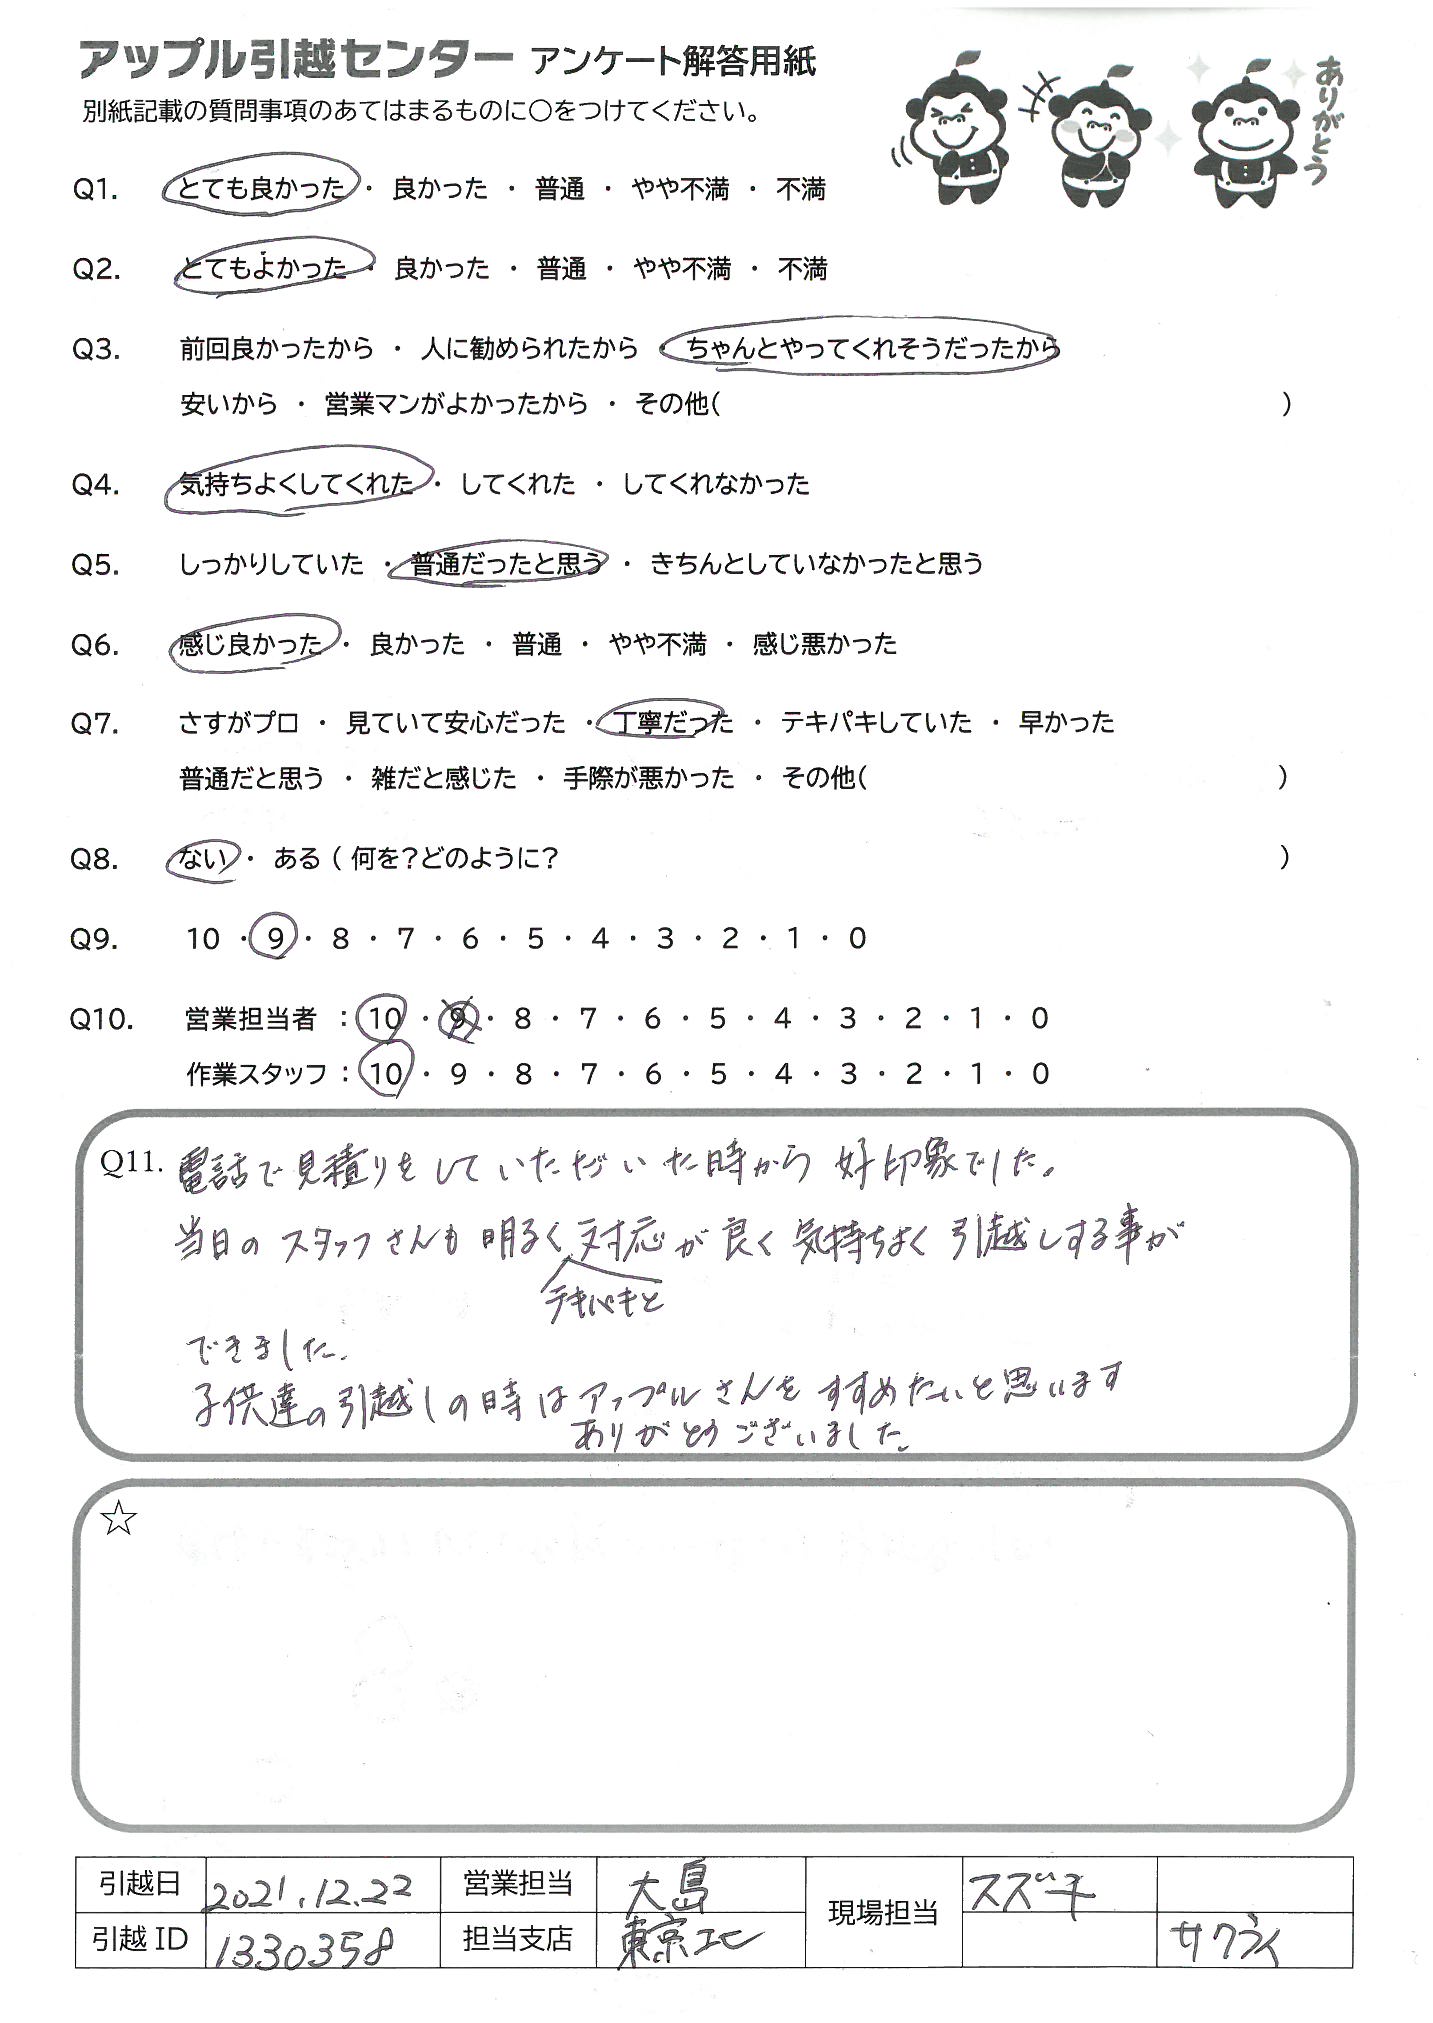 アップル引越センター アンケート解答用紙
別紙記載の質問事項のあてはまるものに○をつけてください。
ありがとう
Q1. とても良かった ・ 良かった ・ 普通 ・ やや不満 ・ 不満
Q2. とてもよかった ・ 良かった ・ 普通 ・ やや不満 ・ 不満
Q3. 前回良かったから ・ 人に勧められたから ・ ちゃんとやってくれそうだったから
安いから ・ 営業マンがよかったから ・ その他( )
Q4. 気持ちよくしてくれた ・ してくれた ・ してくれなかった
Q5. しっかりしていた ・ 普通だったと思う ・ きちんとしていなかったと思う
Q6. 感じ良かった ・ 良かった ・ 普通 ・ やや不満 ・ 感じ悪かった
Q7. さすがプロ ・ 見ていて安心だった ・ 丁寧だった ・ テキパキしていた ・ 早かった
普通だと思う ・ 雑だと感じた ・ 手際が悪かった ・ その他( )
Q8. ない ・ ある ( 何を?どのように? )
Q9. 10 ・ 9 ・ 8 ・ 7 ・ 6 ・ 5 ・ 4 ・ 3 ・ 2 ・ 1 ・ 0
Q10. 営業担当者 : 10 ・ 9 ・ 8 ・ 7 ・ 6 ・ 5 ・ 4 ・ 3 ・ 2 ・ 1 ・ 0
作業スタッフ : 10 ・ 9 ・ 8 ・ 7 ・ 6 ・ 5 ・ 4 ・ 3 ・ 2 ・ 1 ・ 0
Q11. 電話で見積りをしていただいた時から 好印象でした。
当日の スタッフさんも 明るく 対応が 良く 気持ちよく 引越しする事が
テキパキと
できました.
子供達の引越しの時は アップルさんを すすめたいと思います
ありがとうございました.
☆
引越日 2021.12.22 営業担当 大島 現場担当 スズキ
引越 ID 1330358 担当支店 東京 サクライ